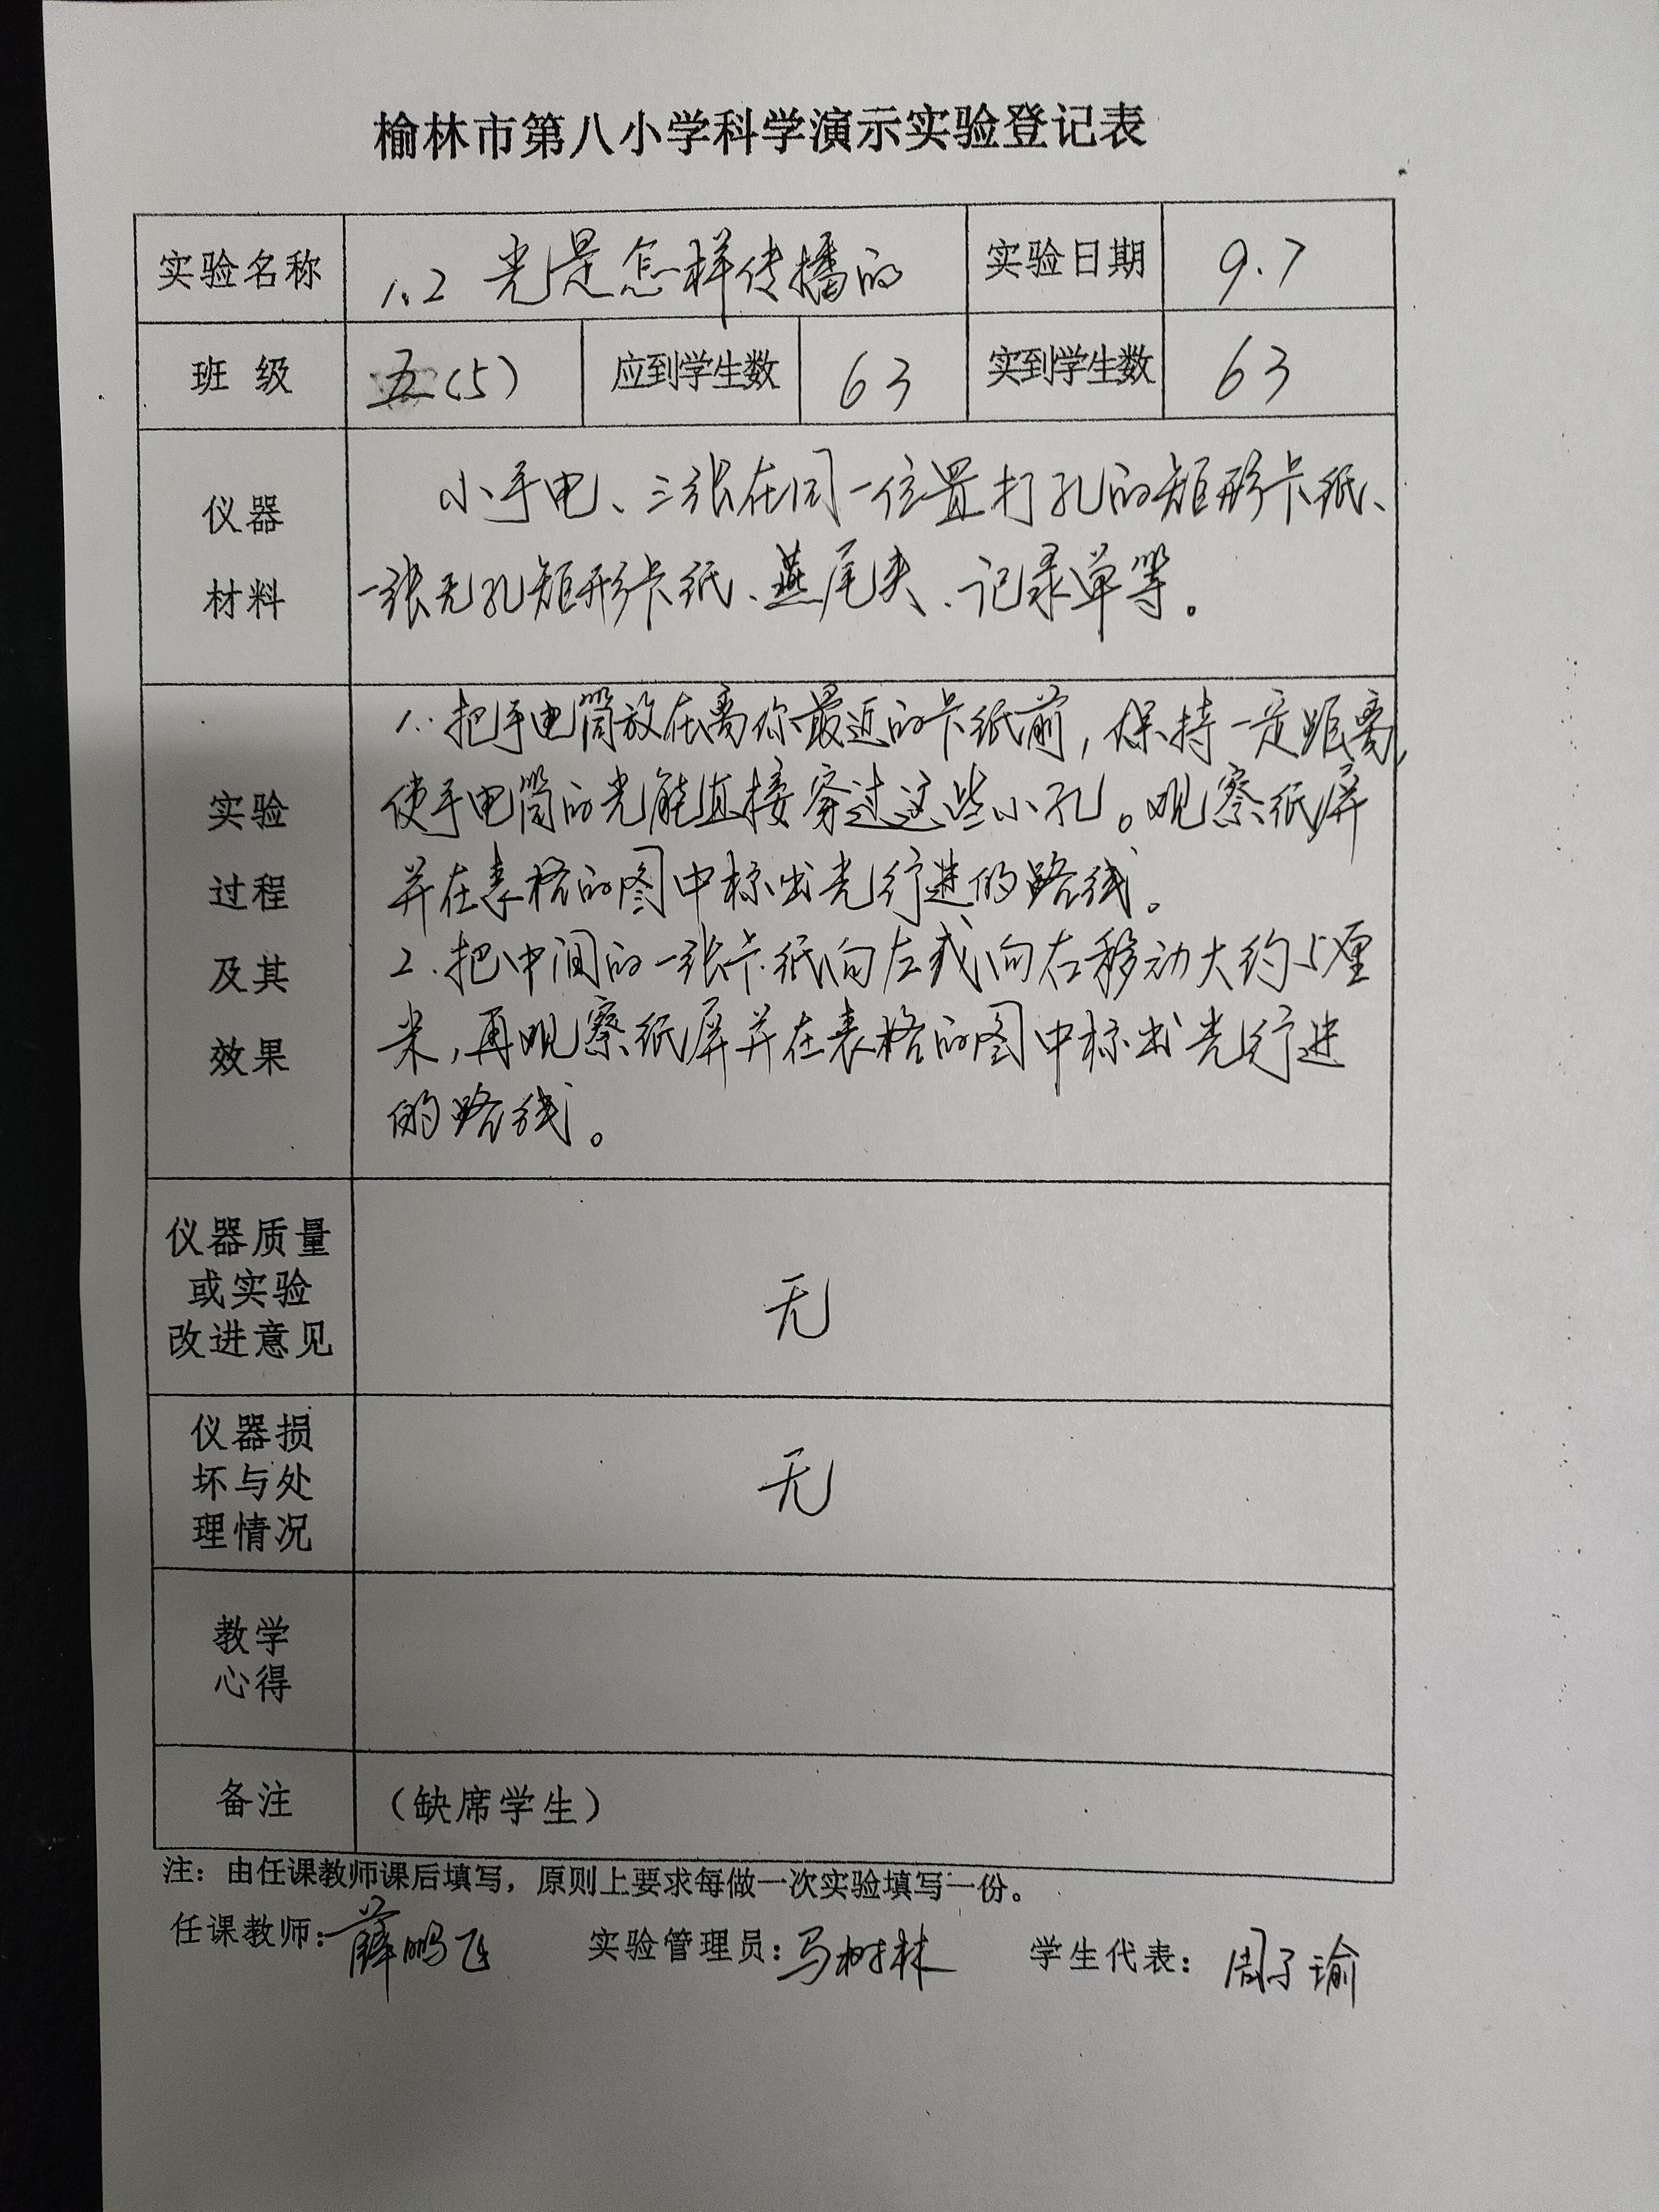 榆林市第八小学科学演示实验登记表
实验名称 1.2 光是怎样传播的 实验日期 9.7
班级 五(5) 应到学生数 63 实到学生数 63
仪器
材料
小手电、三张在同一位置打孔的矩形卡纸、
一张无孔矩形卡纸、燕尾夹、记录单等。
实验
过程
及其
效果
1. 把手电筒放在离你最近的卡纸前，保持一定距离，
使手电筒的光能直接穿过这些小孔。观察纸屏
并在表格的图中标出光行进的路线。
2. 把中间的一张卡纸向左或向右移动大约5厘
米，再观察纸屏并在表格的图中标出光行进
的路线。
仪器质量
或实验
改进意见
无
仪器损
坏与处
理情况
无
教学
心得
备注 （缺席学生）
注：由任课教师课后填写，原则上要求每做一次实验填写一份。
任课教师：薛鹏飞 实验管理员：马树林 学生代表：周子瑜